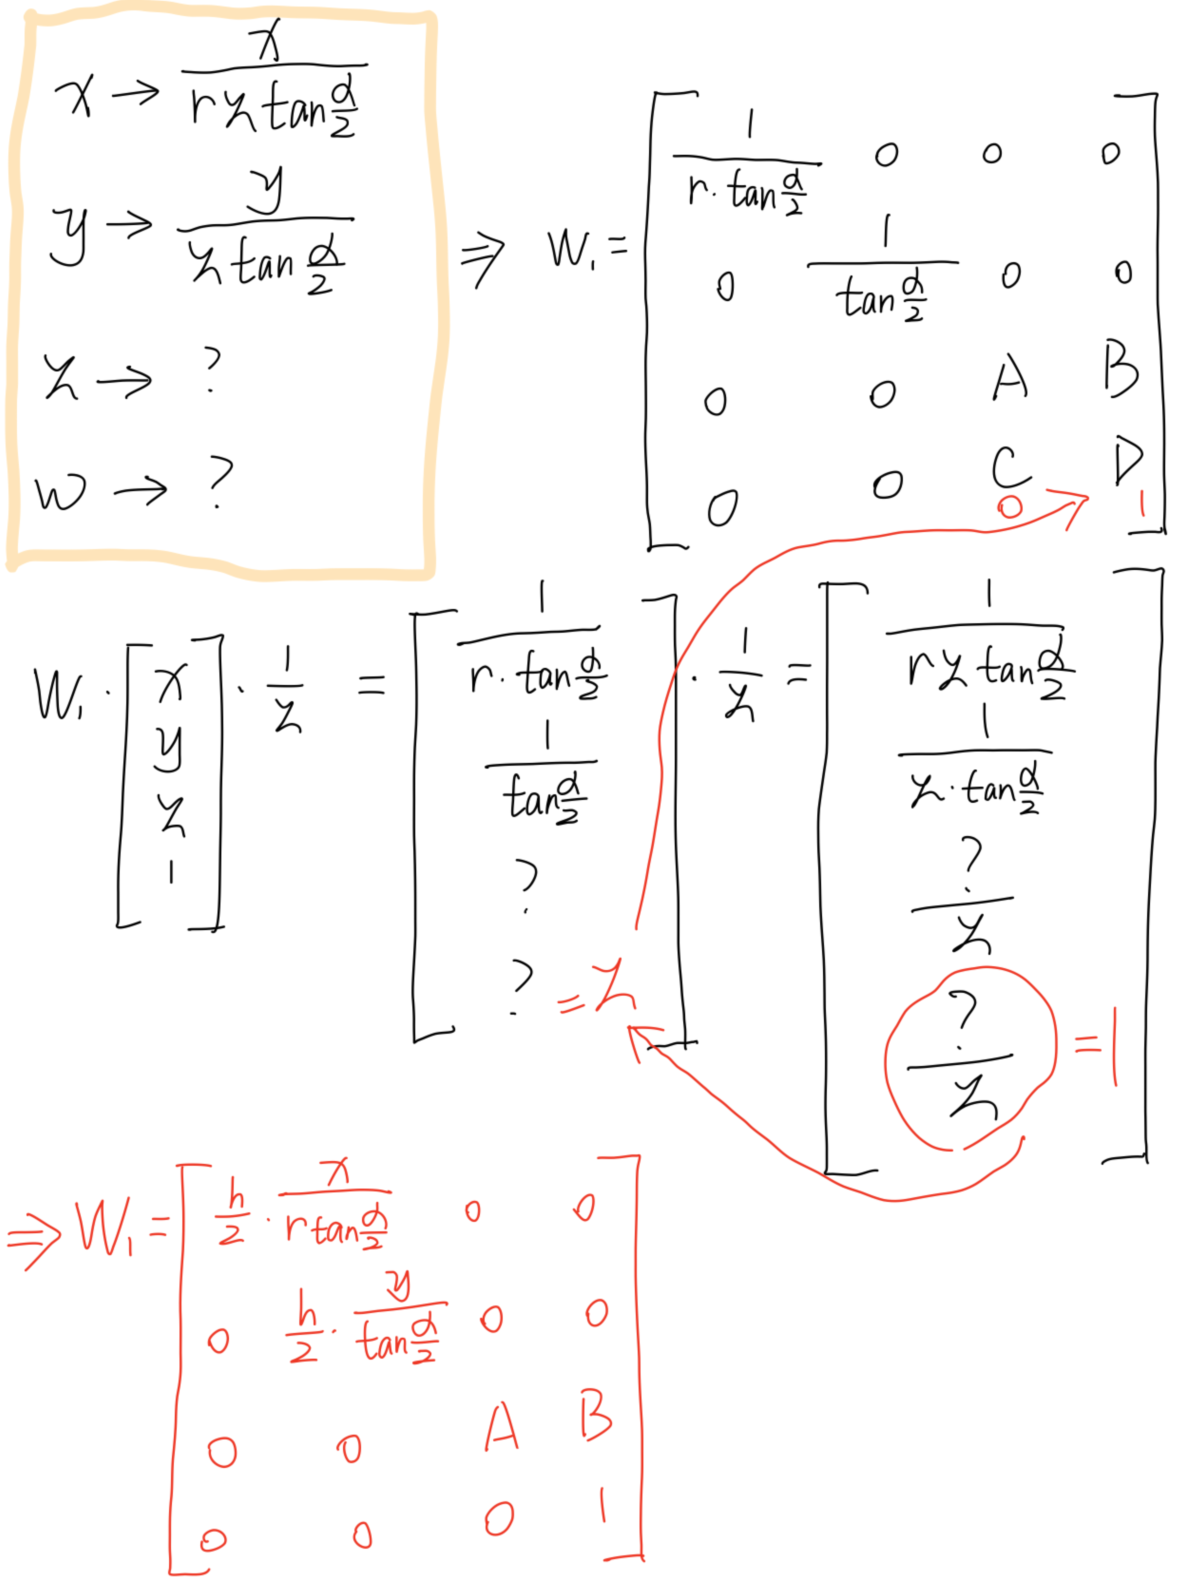 x → x / (r z tan α/2)
y → y / (z tan α/2)
z → ?
w → ?
⇒ W₁ = [ 1/(r · tan α/2) 0 0 0
0 1/(tan α/2) 0 0
0 0 A B
0 0 C D ]
0 1
W₁ · [ x y z 1 ] · 1/z = [ 1/(r · tan α/2) 1/(tan α/2) ? ? ] · 1/z = [ 1/(r z tan α/2) 1/(z · tan α/2) ?/z ?/z ]
= z
= 1
⇒ W₁ = [ h/2 · x/(r tan α/2) 0 0
0 h/2 · y/(tan α/2) 0 0
0 0 A B
0 0 0 1 ]